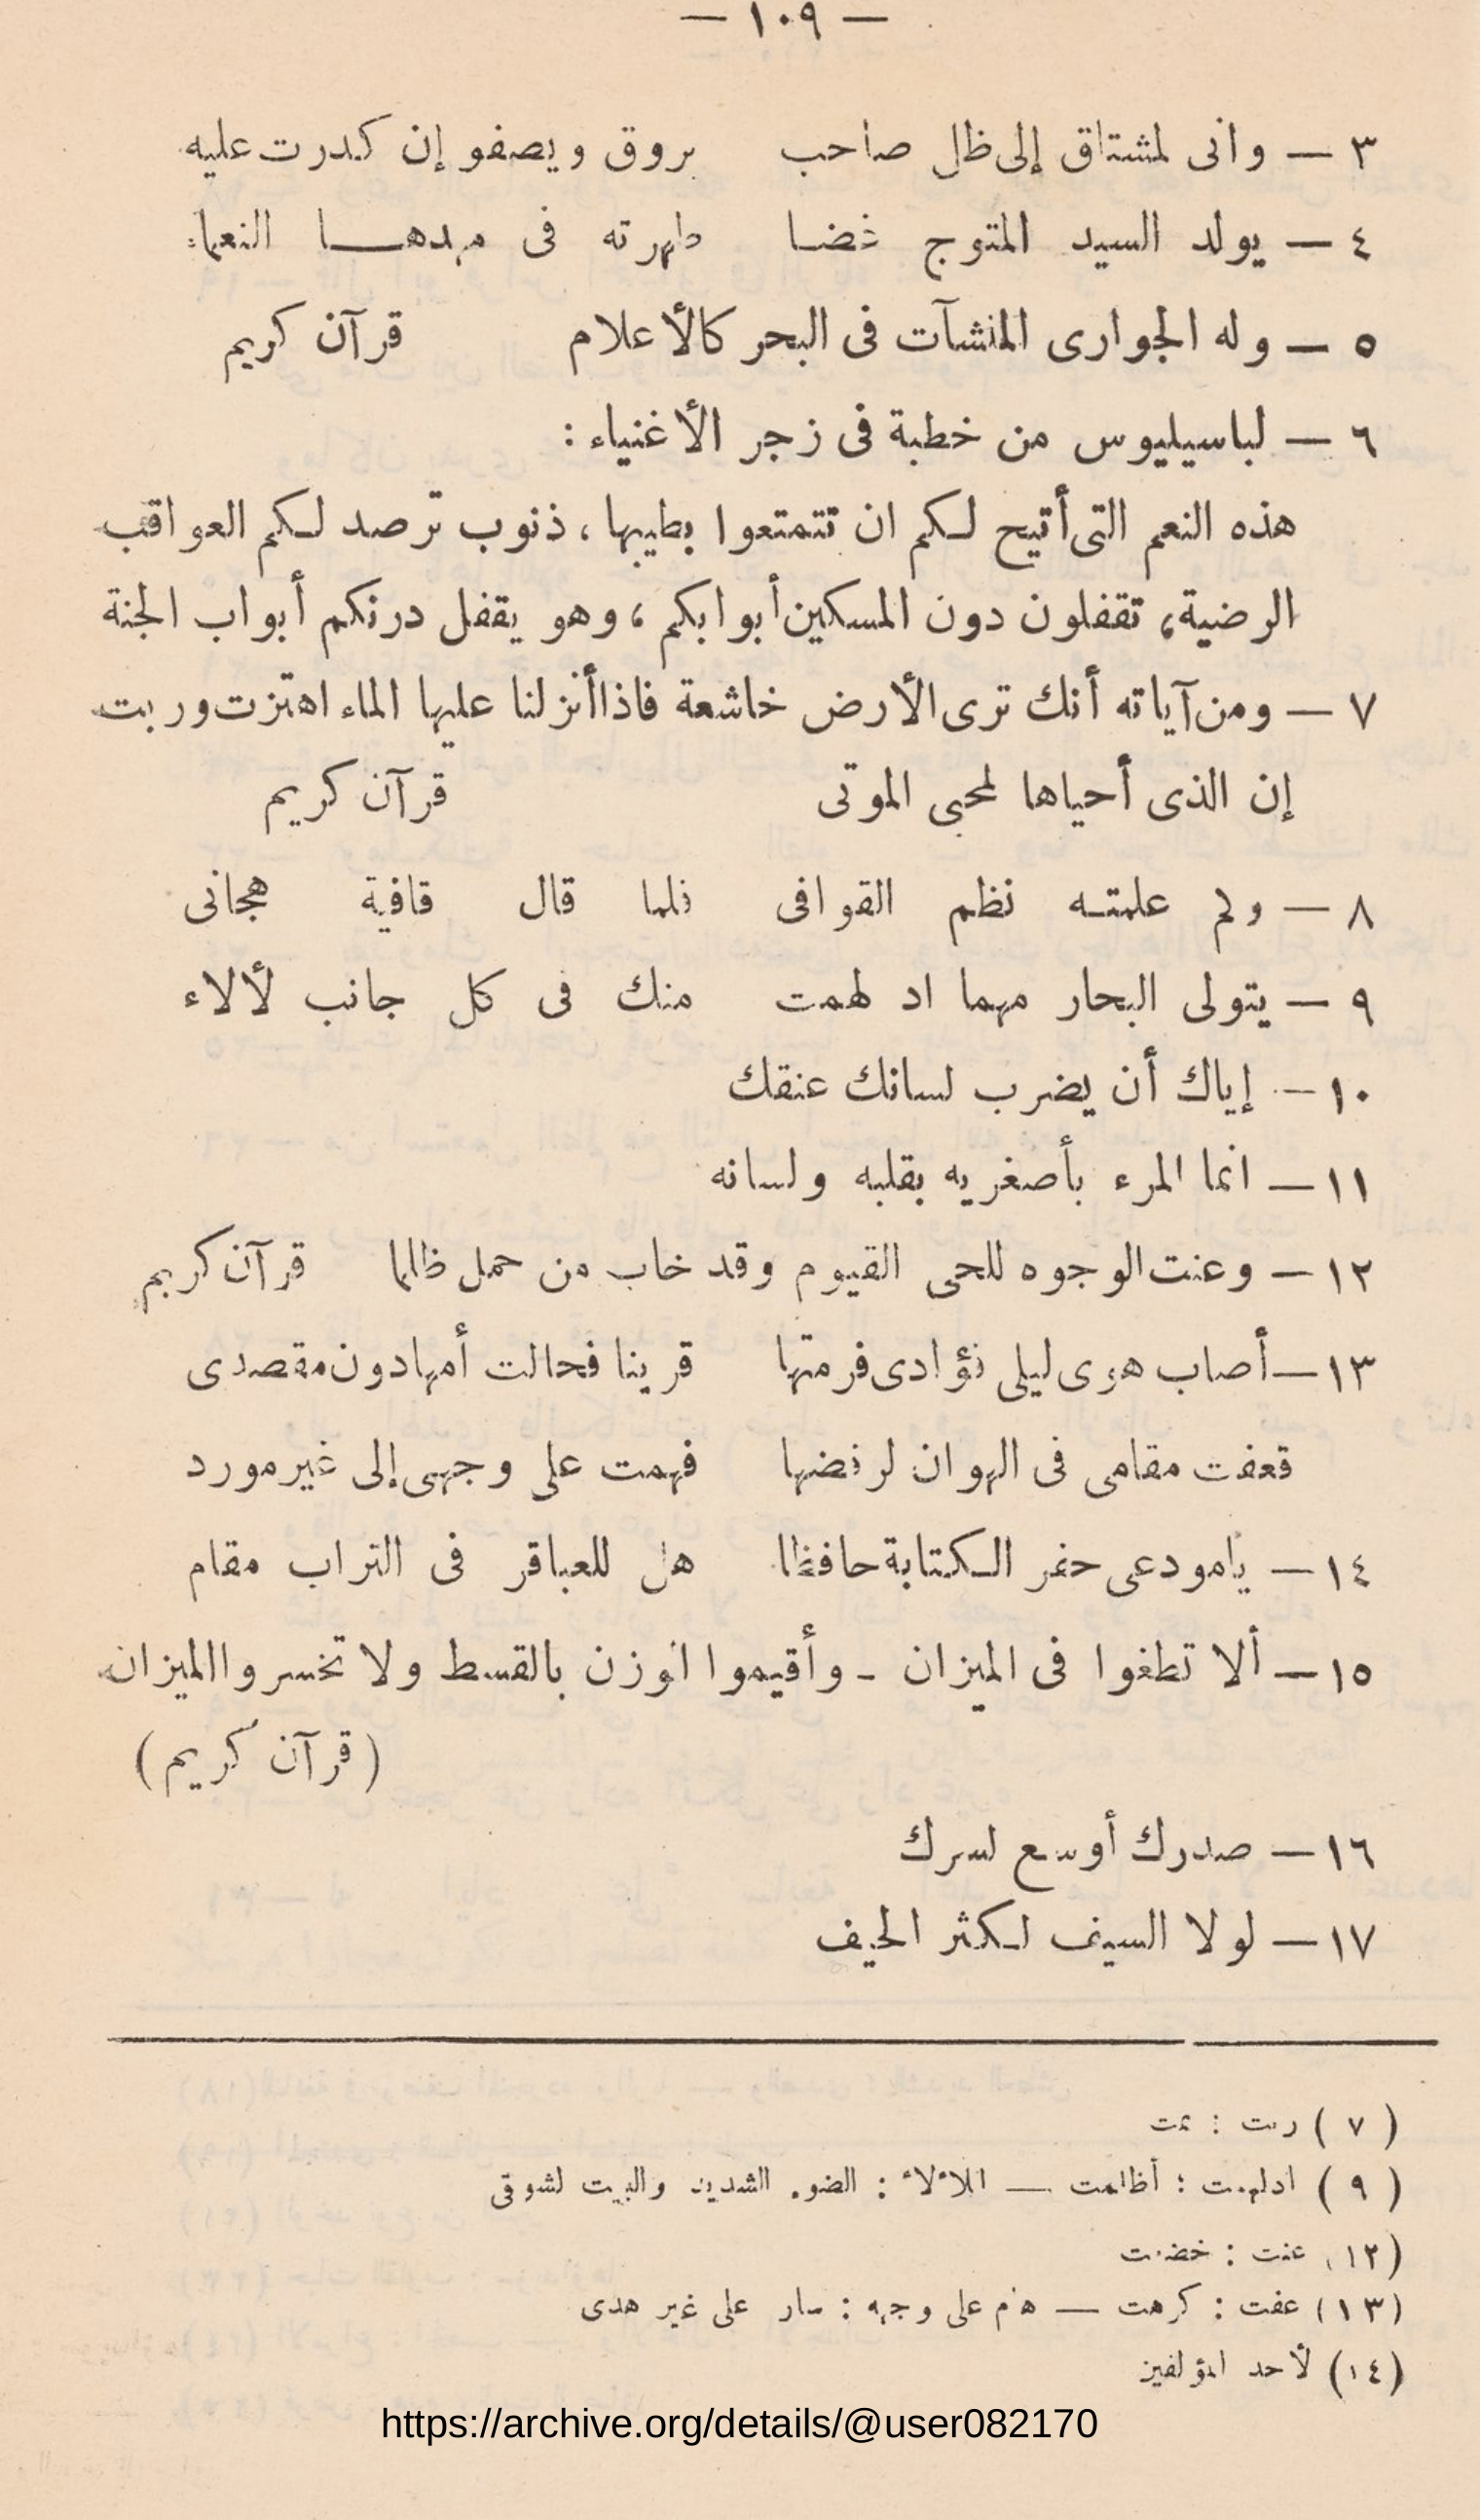 — ١٠٩ —
٣ — وانى لمشتاق إلى ظل صاحب يروق ويصفو إن كدرت عليه
٤ — يولد السيد المتوج غضا طهرته فى مهدها النعماء
٥ — وله الجوارى المنشآت فى البحر كالأعلام قرآن كريم
٦ — لباسيليوس من خطبة فى زجر الأغنياء :
هذه النعم التى أتيح لكم ان تتمتعوا بطيبها ، ذنوب ترصد لكم العواقب
الرضية، تقفلون دون المسكين أبوابكم ، وهو يقفل درنكم أبواب الجنة
٧ — ومن آياته أنك ترى الأرض خاشعة فاذا أنزلنا عليها الماء اهتزت وربت
إن الذى أحياها لمحيى الموتى قرآن كريم
٨ — وكم علمته نظم القوافى فلما قال قافية هجانى
٩ — يتولى البحار مهما ادلهمت منك فى كل جانب لألاء
١٠ — إياك أن يضرب لسانك عنقك
١١ — انما المرء بأصغريه بقلبه ولسانه
١٢ — وعنت الوجوه للحى القيوم وقد خاب من حمل ظلما قرآن كريم
١٣ — أصاب هوى ليلى فؤادى فرمتها قرينا فحالت أمها دون مقصدى
قعفت مقامى فى الهوان لرفضها فهمت على وجهى إلى غير مورد
١٤ — يامودعى حفر الكتابة حافظا هل للعباقر فى التراب مقام
١٥ — ألا تطغوا فى الميزان - وأقيموا الوزن بالقسط ولا تخسروا الميزان
(قرآن كريم)
١٦ — صدرك أوسع لسرك
١٧ — لولا السيف لكثر الحيف
(٧) ربت : نمت
(٩) ادلهمت : أظلمت — اللألاء : الضوء الشديد والبيت لشوقى
(١٢) عنت : خضعت
(١٣) عفت : كرهت — هام على وجهه : سار على غير هدى
(١٤) لأحد المؤلفين
https://archive.org/details/@user082170